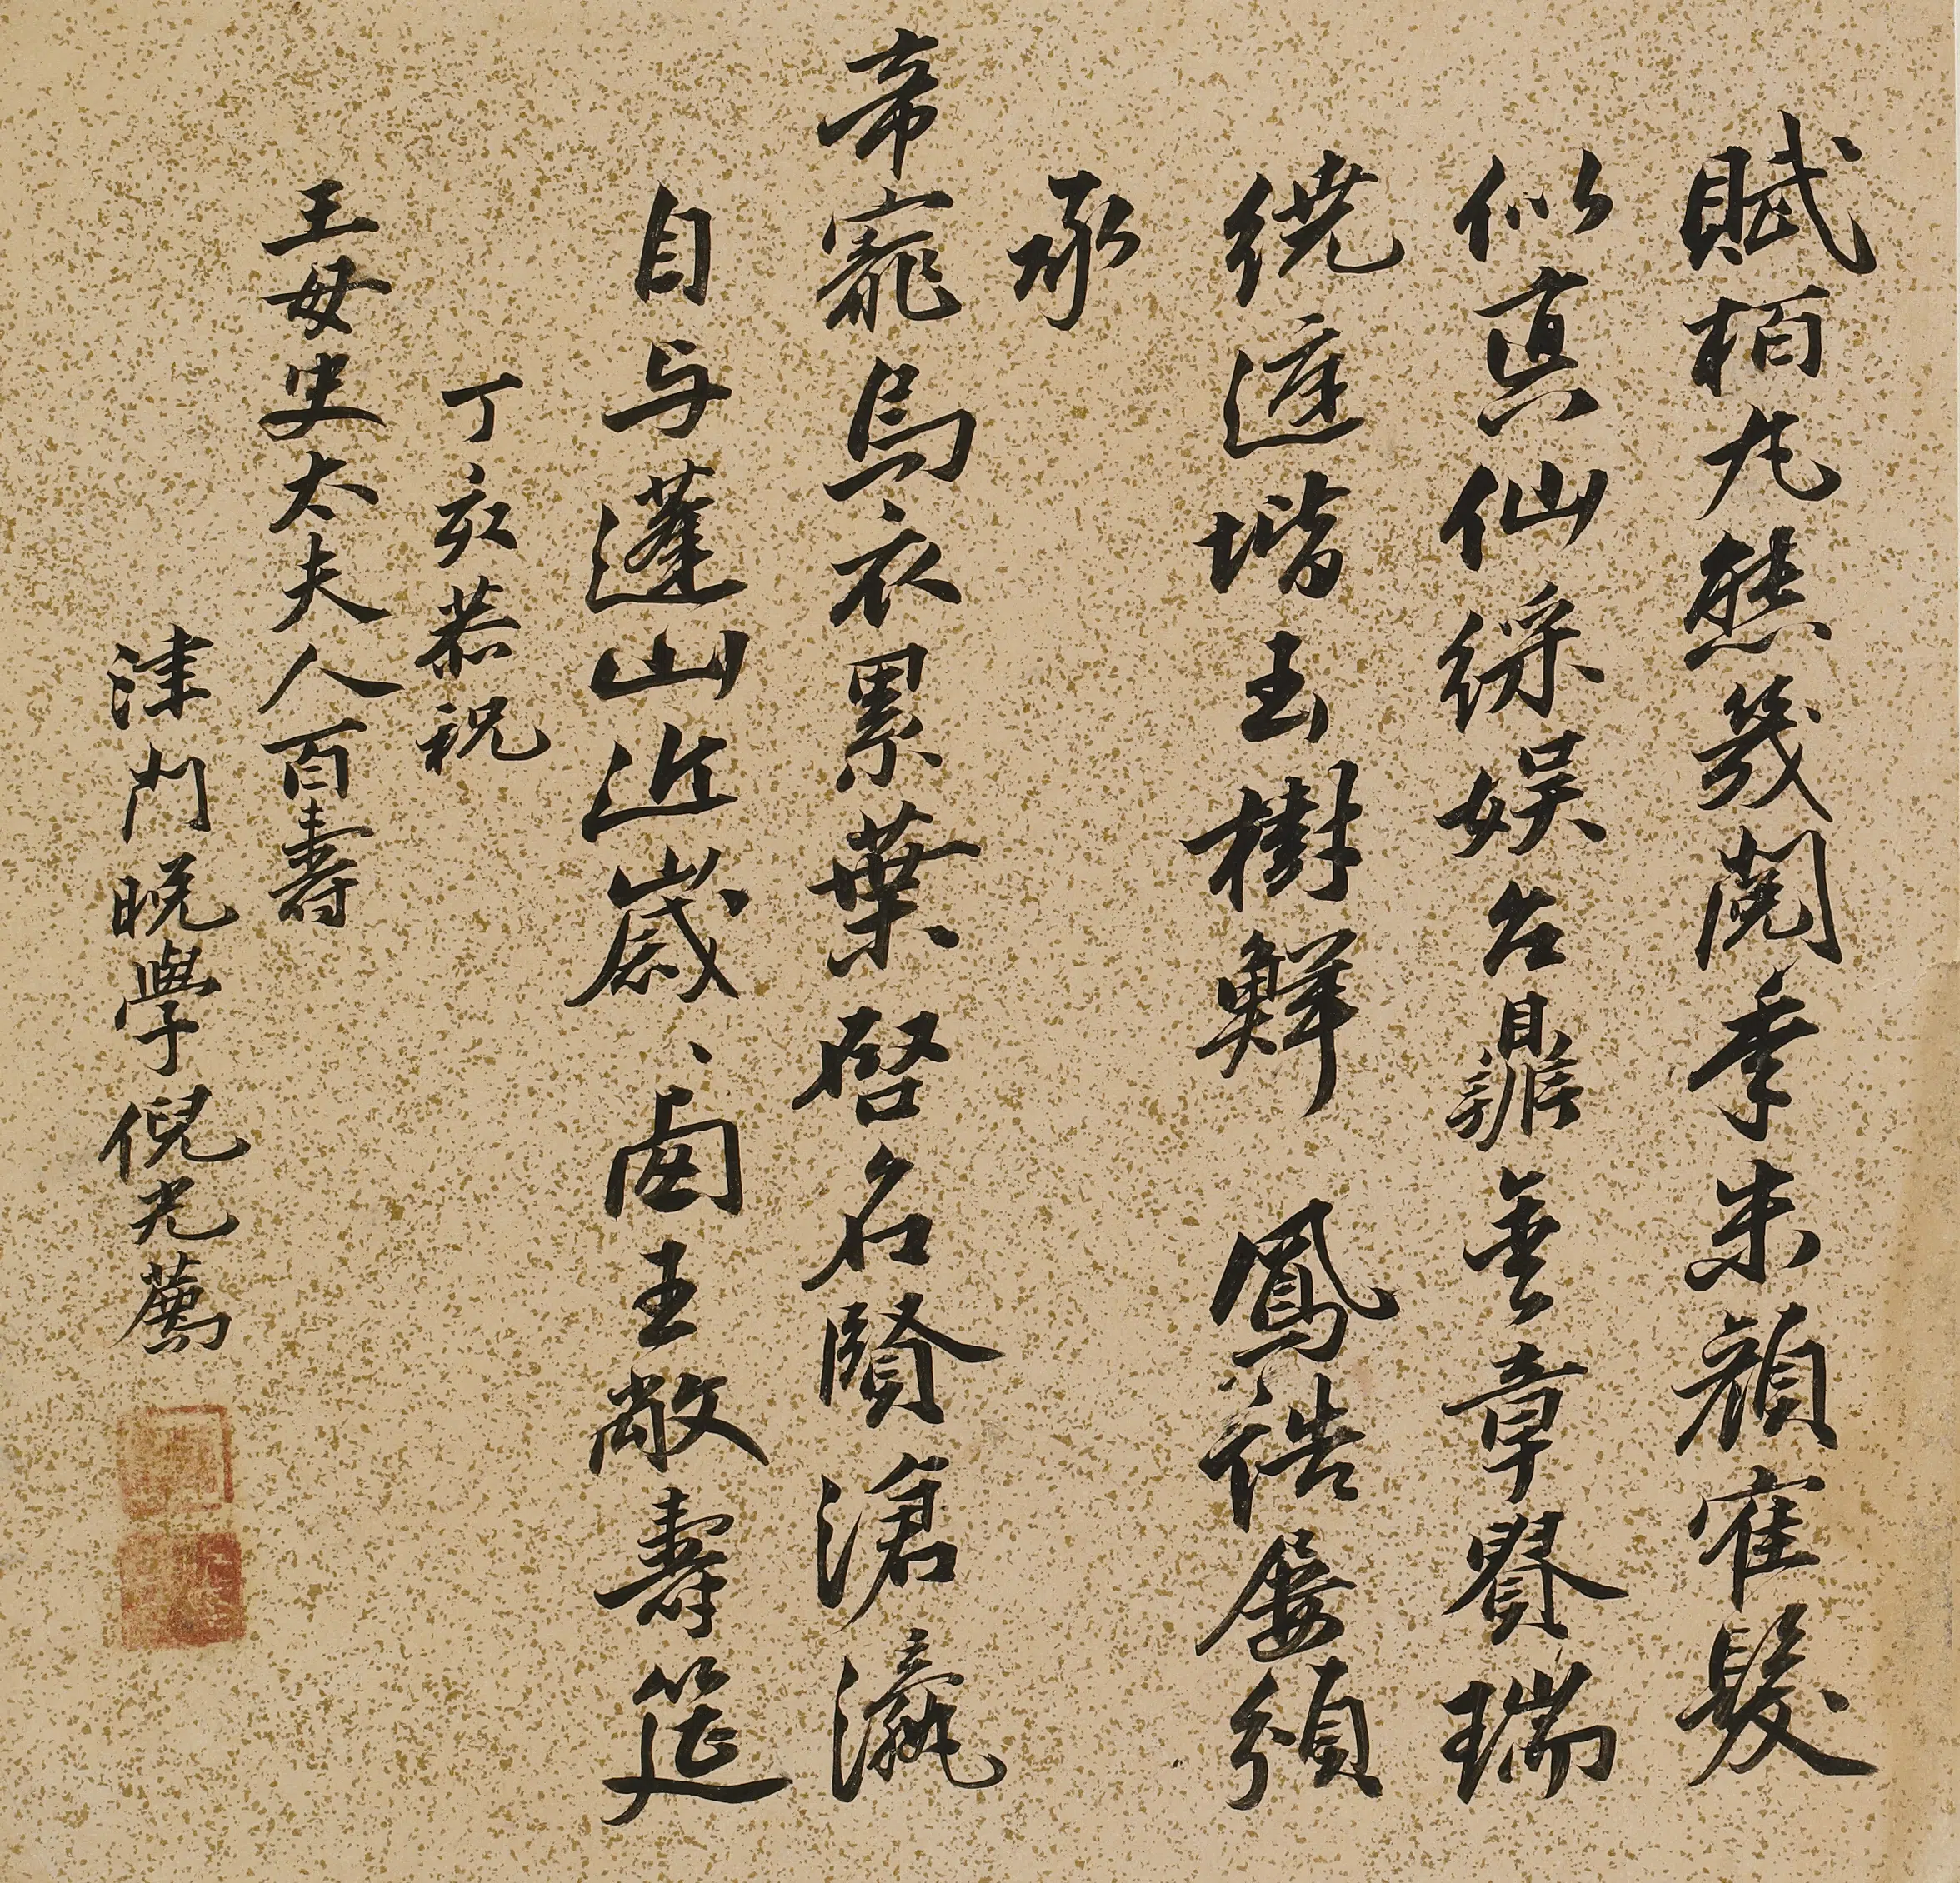 賦栢丸熊幾閱季朱顏寉髮
似真仙綵娱台鼎金章貴瑞
繞庭堦玉樹鮮鳳誥屢頒
承
帝寵烏衣累葉啓名賢滄瀛
自与蓬山近歲、西王敞壽筵
丁亥恭祝
王母史太夫人百壽
津門晚學倪光薦